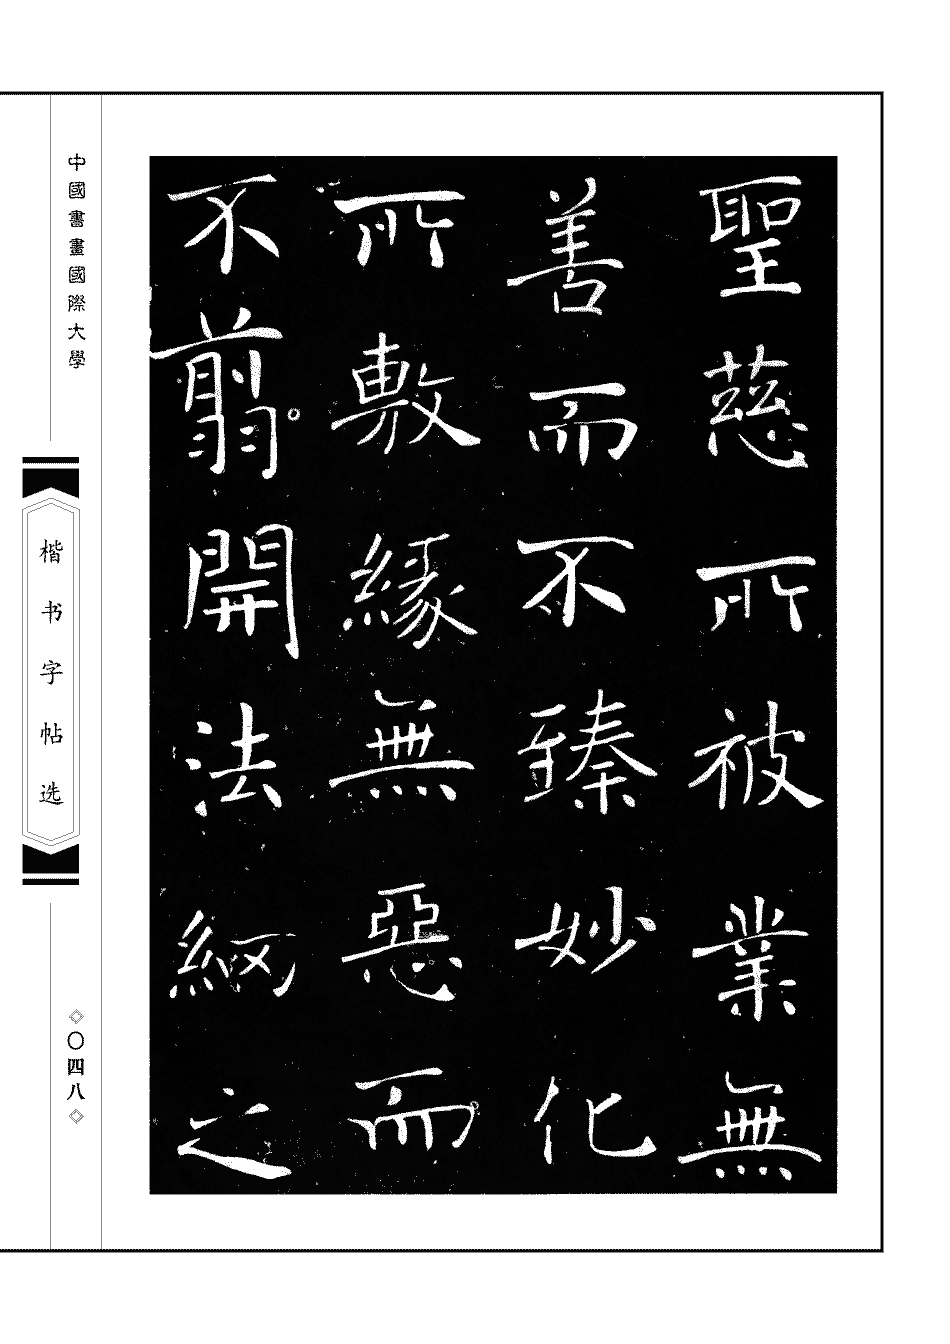 聖慈所被業無
善而不臻妙化
所敷緣無惡而
不翦開法網之
中國書畫國際大學
楷书字帖选
◇〇四八◇